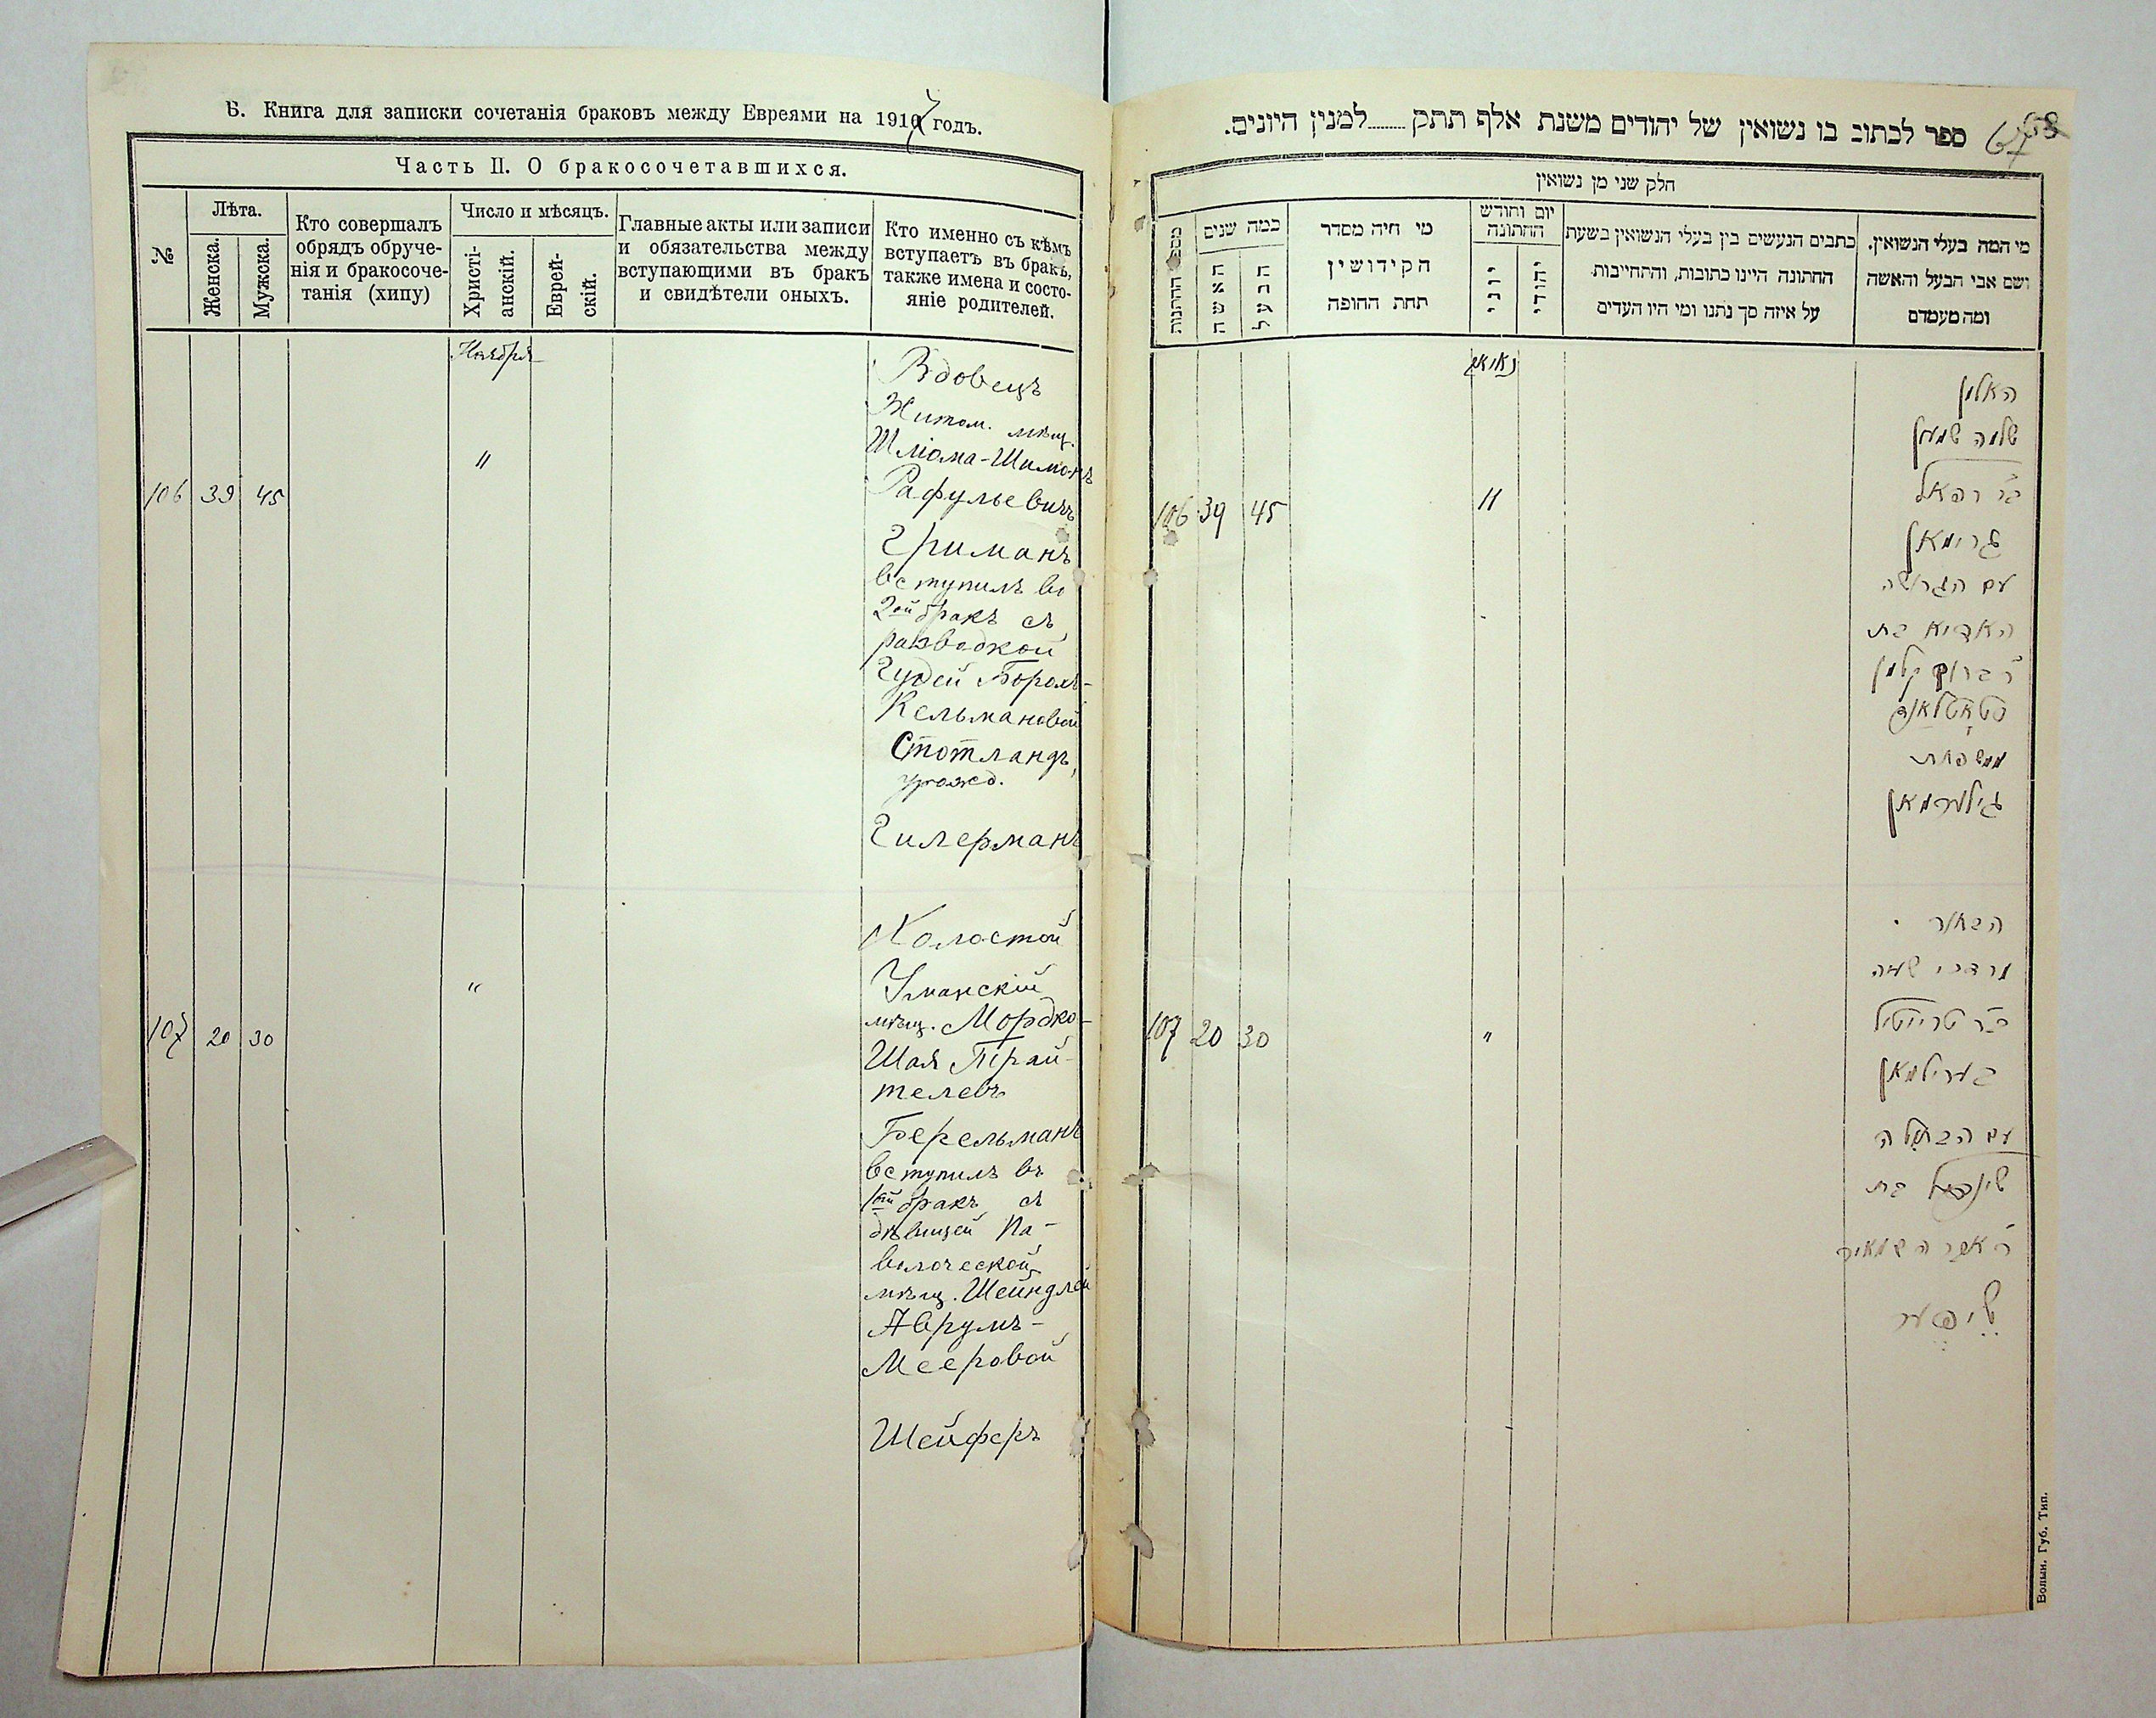 В. Книга для записки сочетанія браковъ между Евреями на 1917 годъ.
Часть II. О бракосочетавшихся.
№
Лѣта.
Женска.
Мужска.
Кто совершалъ
обрядъ обруче-
нія и бракосоче-
танія (хипу)
Число и мѣсяцъ.
Христі-
анскій.
Еврей-
скій.
Главные акты или записи
и обязательства между
вступающими въ бракъ
и свидѣтели оныхъ.
Кто именно съ кѣмъ
вступаетъ въ бракъ,
также имена и состо-
яніе родителей.
Ноября
106 39 45
"
Вдовецъ
Житом. мѣщ.
Шліома-Шимонъ
Рафульевичъ
Гриманъ
вступилъ во
2ой бракъ съ
разводкой
Гудей Борохъ-
Кельмановой
Стотландъ,
урожд.
Гилерманъ
107 20 30
"
Холостой
Уманскій
мѣщ. Мордко-
Шая Трай-
телевъ
Берельманъ
вступилъ въ
1ый бракъ съ
дѣвицей Па-
волоческой
мѣщ. Шейндлей
Аврумъ-
Мееровой
Шейферъ
67
58
ספר לכתוב בו נשואין של יהודים משנת אלף תתק........למנין היונים.
חלק שני מן נשואין
מי המה בעלי הנשואין.
ושם אבי הבעל והאשה
ומה מעמדם
כתבים הנעשים בין בעלי הנשואין בשעת
החתונה היינו כתובות, והתחייבות
על איזה סך נתנו ומי היו העדים
יום וחודש
החתונה
יהודי
יוני
מי היה מסדר
הקידושין
תחת החופה
כמה שנים
הבעל
האשה
מספר החתונות
האלמן
שלמה שמעון
ב״ר רפאל
גרימאן
עם הגרושה
האדיא בת
ר׳ ברוך קלמן
סטאטלאנד
ממשפחת
גילערמאן
106 39 45
"
הבחור
מרדכי שעיה
ב״ר טרייטיל
בערילמאן
עם הבתולה
שיינדל בת
107 20 30
"
שייפער
Волын. Губ. Тип.